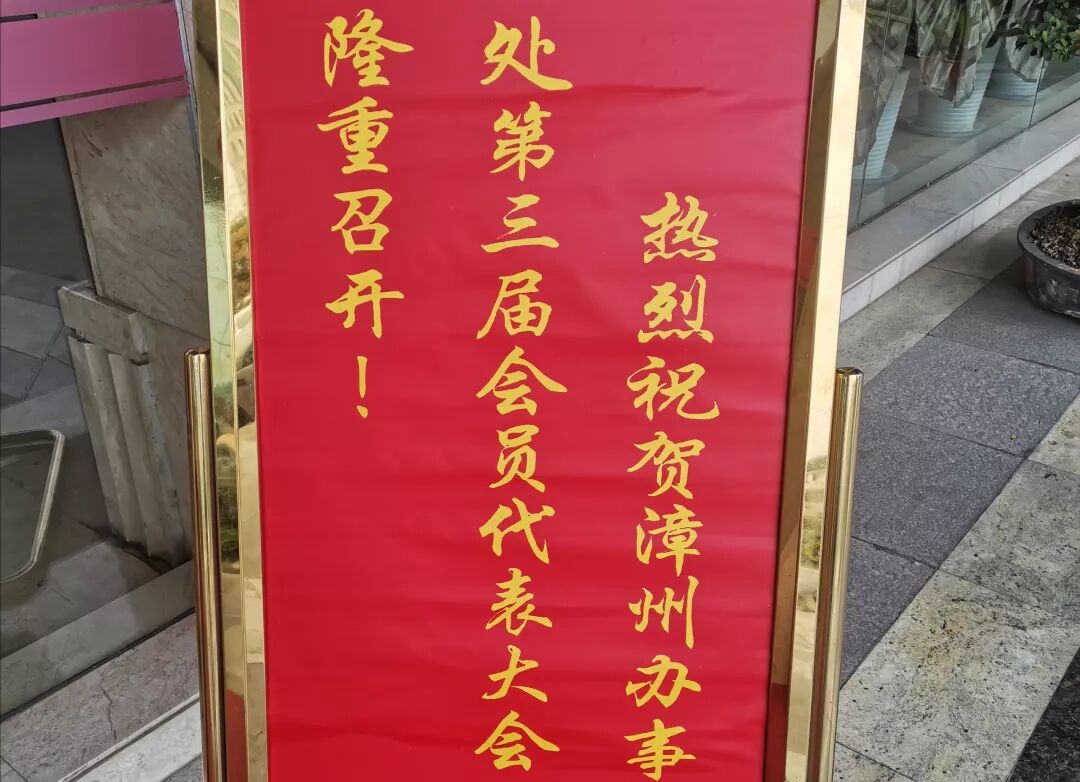 热烈祝贺漳州办事
处第三届会员代表大会
隆重召开！